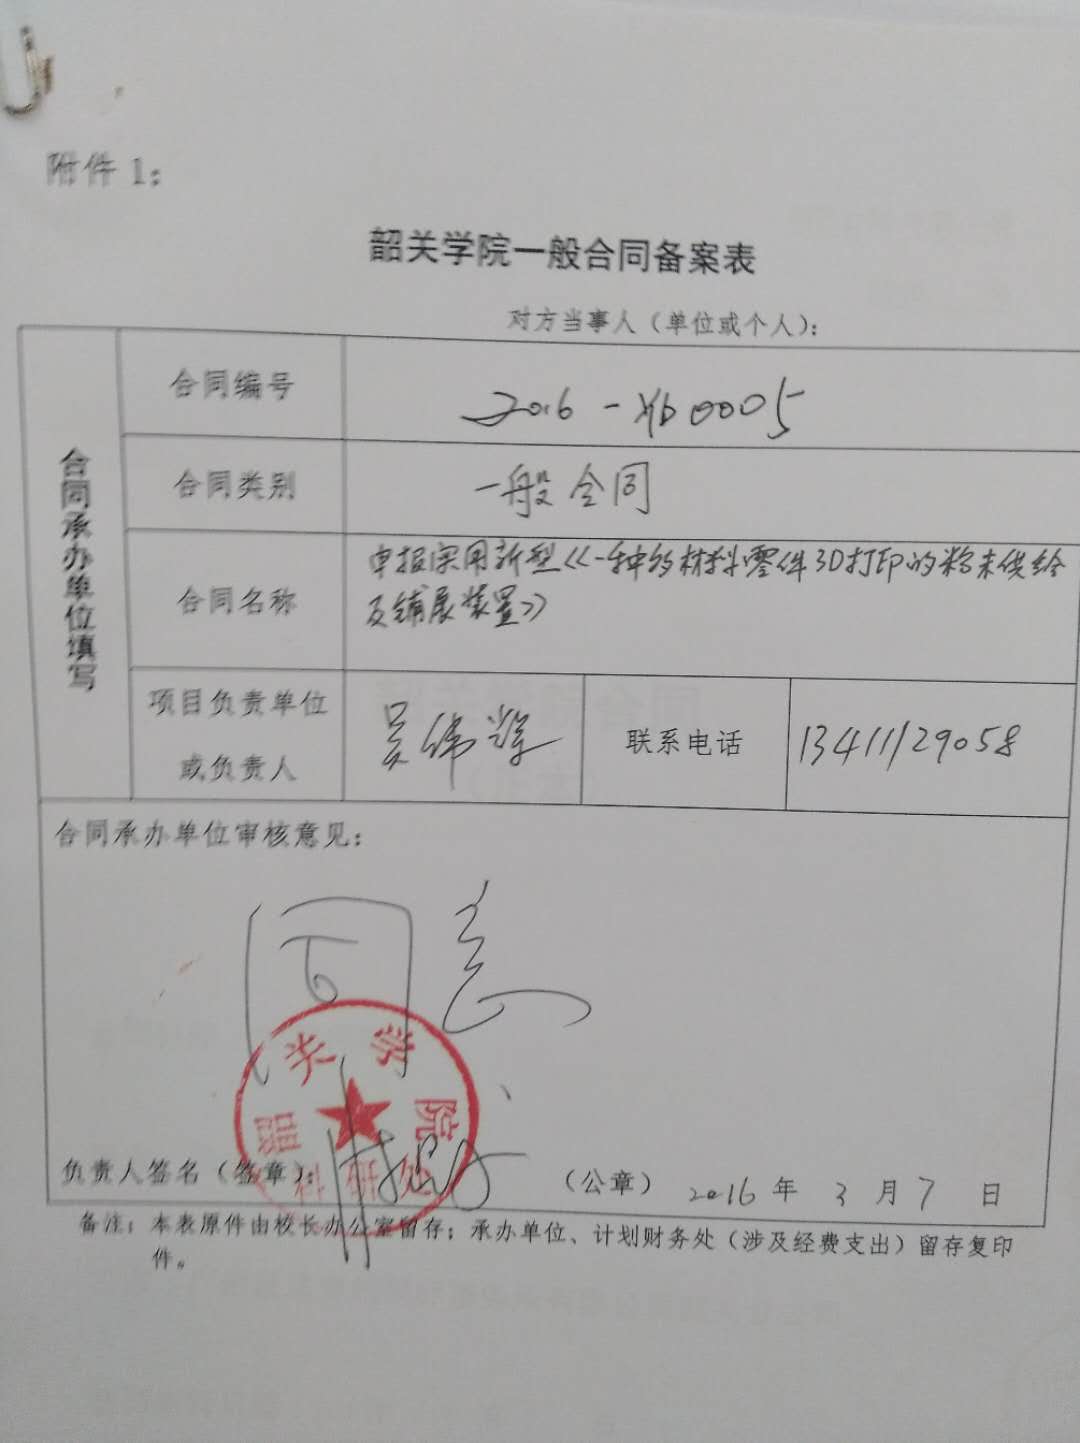 附件 1：
韶关学院一般合同备案表
对方当事人（单位或个人）：
合同承办单位填写
合同编号
2016-Yb0005
合同类别
一般合同
合同名称
申报实用新型《一种多材料零件3D打印的粉末供给
及铺展装置》
项目负责单位
或负责人
吴伟辉
联系电话
13411129058
合同承办单位审核意见：
同意
韶关学院
科研处
负责人签名（签章）：
（公章） 2016 年 3 月 7 日
备注：本表原件由校长办公室留存；承办单位、计划财务处（涉及经费支出）留存复印
件。